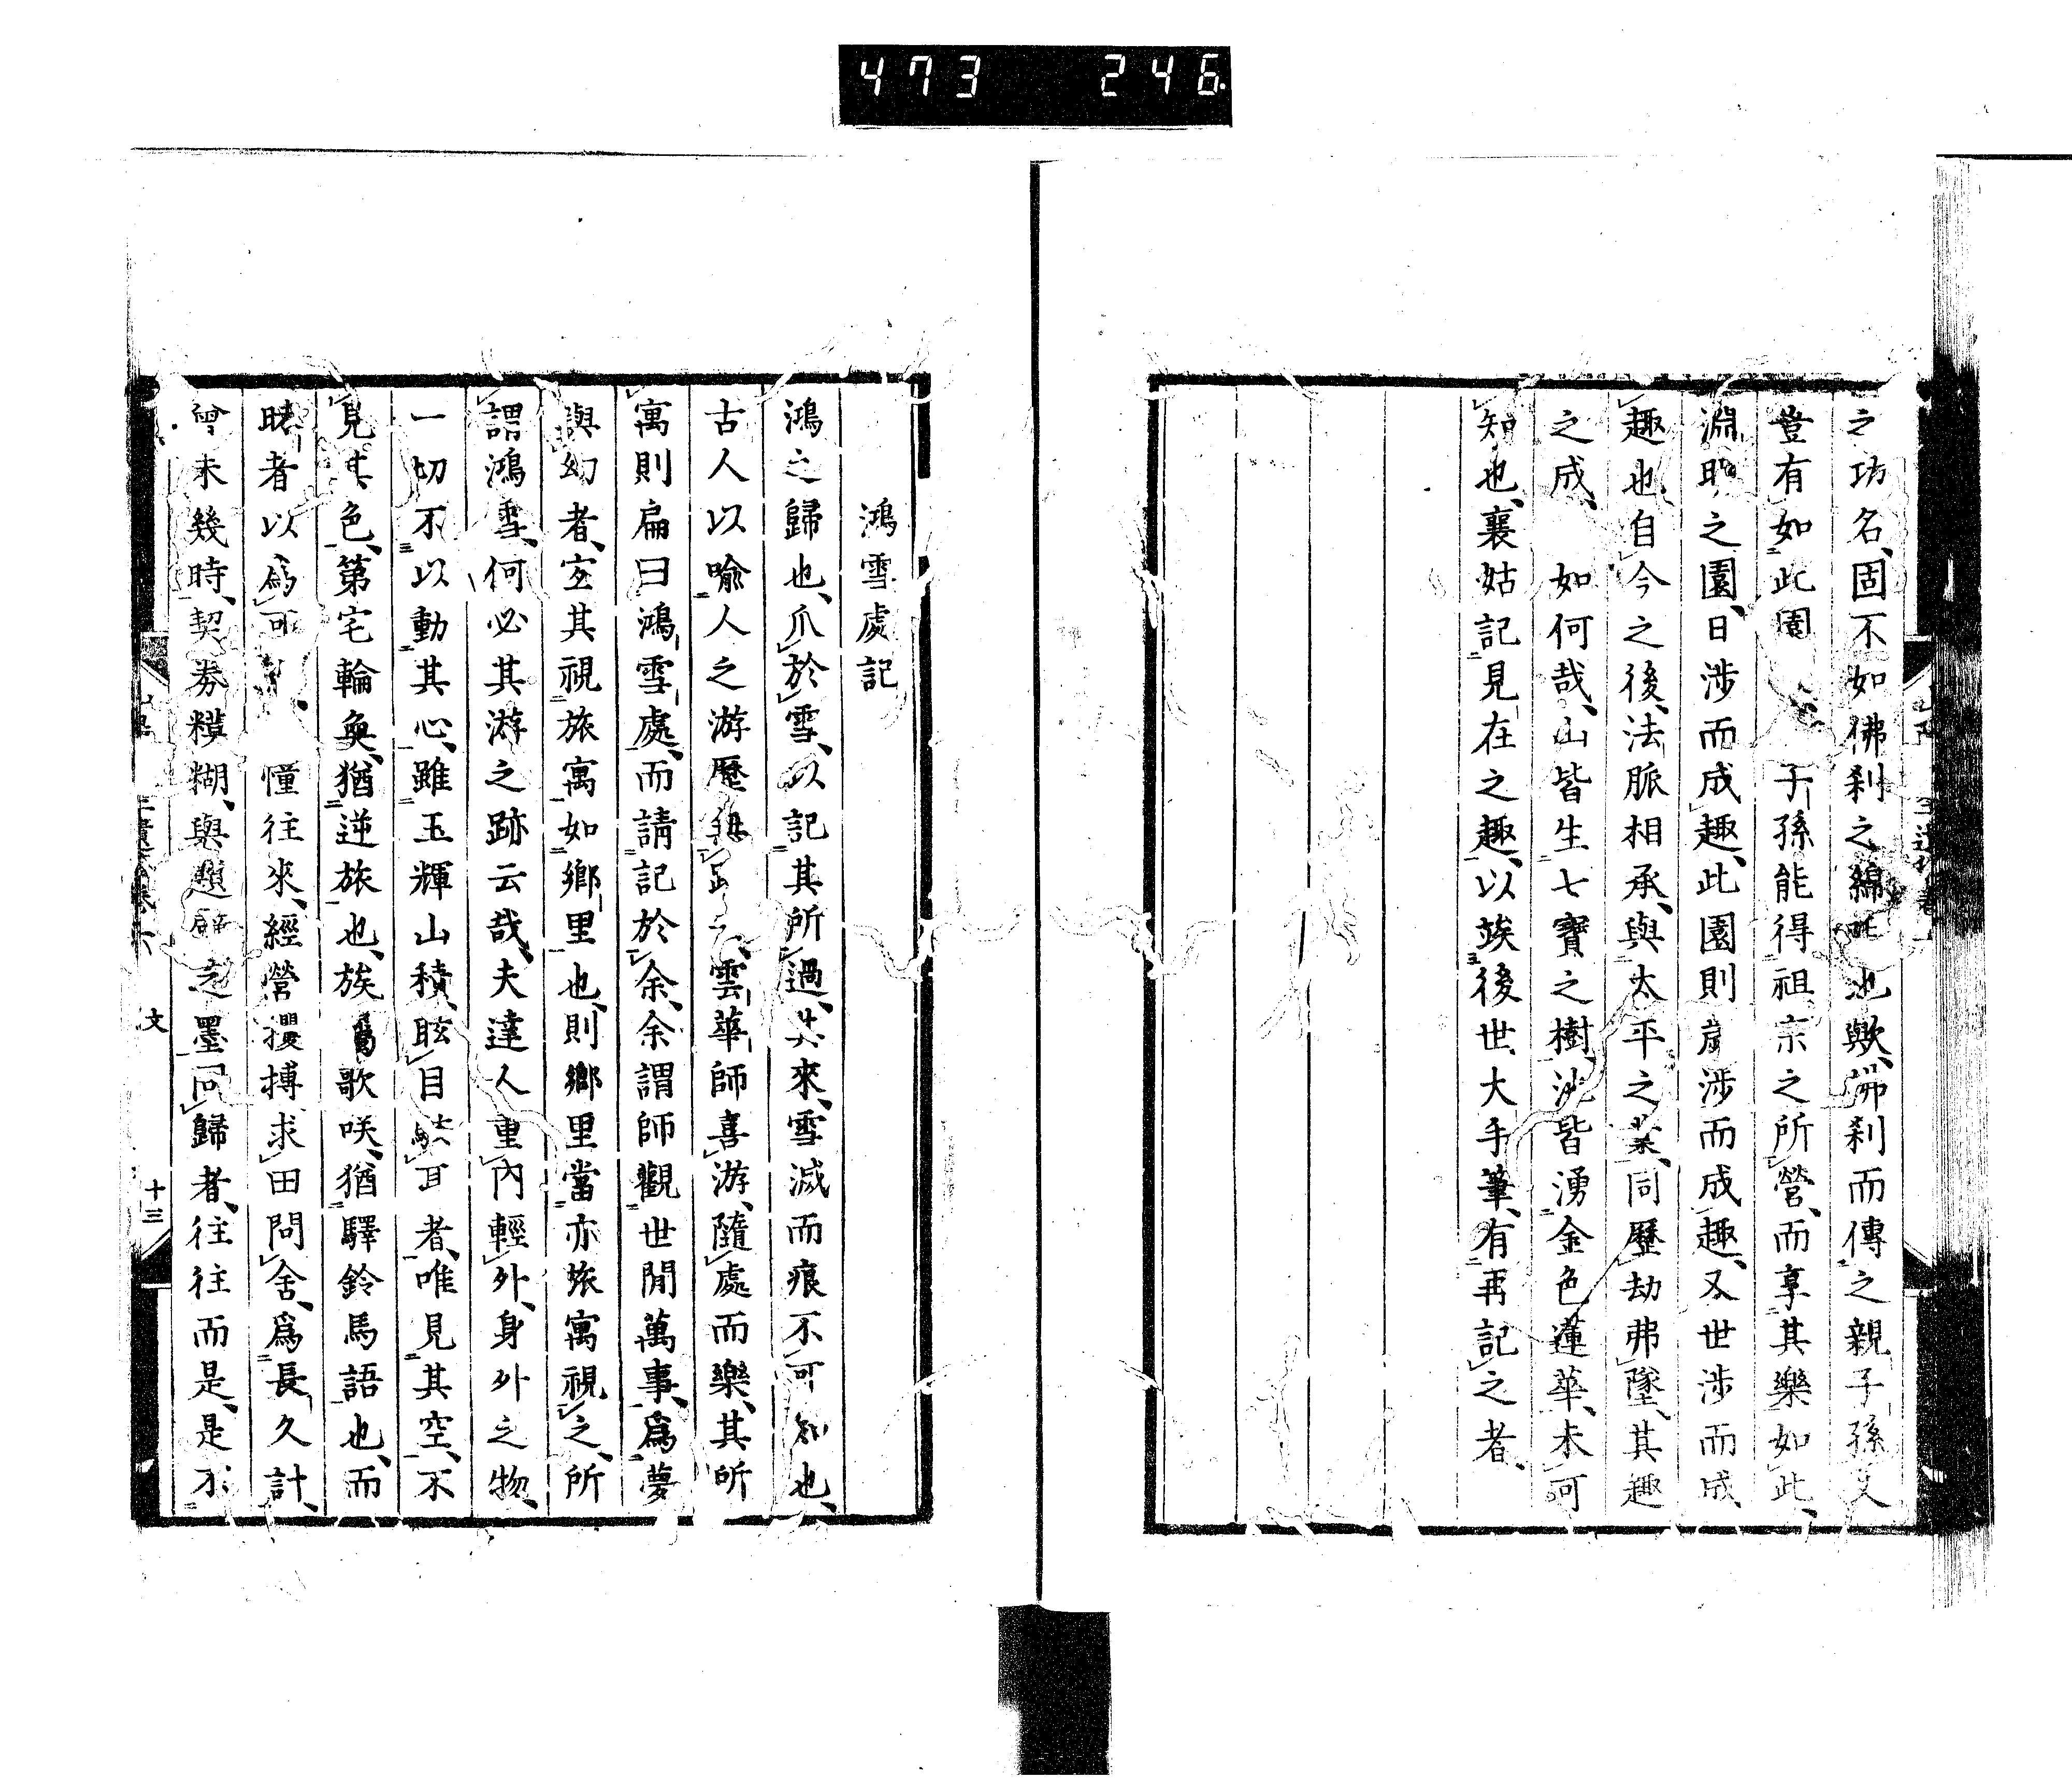 473 246
之功名、固不如佛刹之綿也歟、佛刹而傳之親子孫又
豈有如此園子孫能得祖宗之所營、而享其樂如此、
淵明之園、日涉而成趣、此園則歲涉而成趣、又世涉而成
趣也、自今之後、法脈相承、與太平之業、同歷劫弗墜、其趣
之成、如何哉、山皆生七寶之樹、沙皆湧金色蓮華、未可
知也、襄姑記見在之趣、以竢後世大手筆、有再記之者、
鴻雪處記
鴻之歸也、爪於雪、以記其所過、其來、雪滅而痕不可知也、
古人以喻人之游歷無、雲華師喜游、隨處而樂、其所
寓則扁曰鴻雪處、而請記於余、余謂師觀世間萬事、爲夢
與幻者、宜其視旅寓如鄉里也、則鄉里當亦旅寓視之、所
謂鴻雪、何必其游之跡云哉、夫達人重內輕外、身外之物、
一切不以動其心、雖玉輝山積、眩目駴耳者、唯見其空、不
見其色、第宅輪奐、猶逆旅也、族歌咲、猶驛鈴馬語也、而
者以爲可憧往來、經營攫搏求田問舍、爲長久計、
曾未幾時、契券糢糊、與題之墨同歸者、往往而是、是不
文
十三